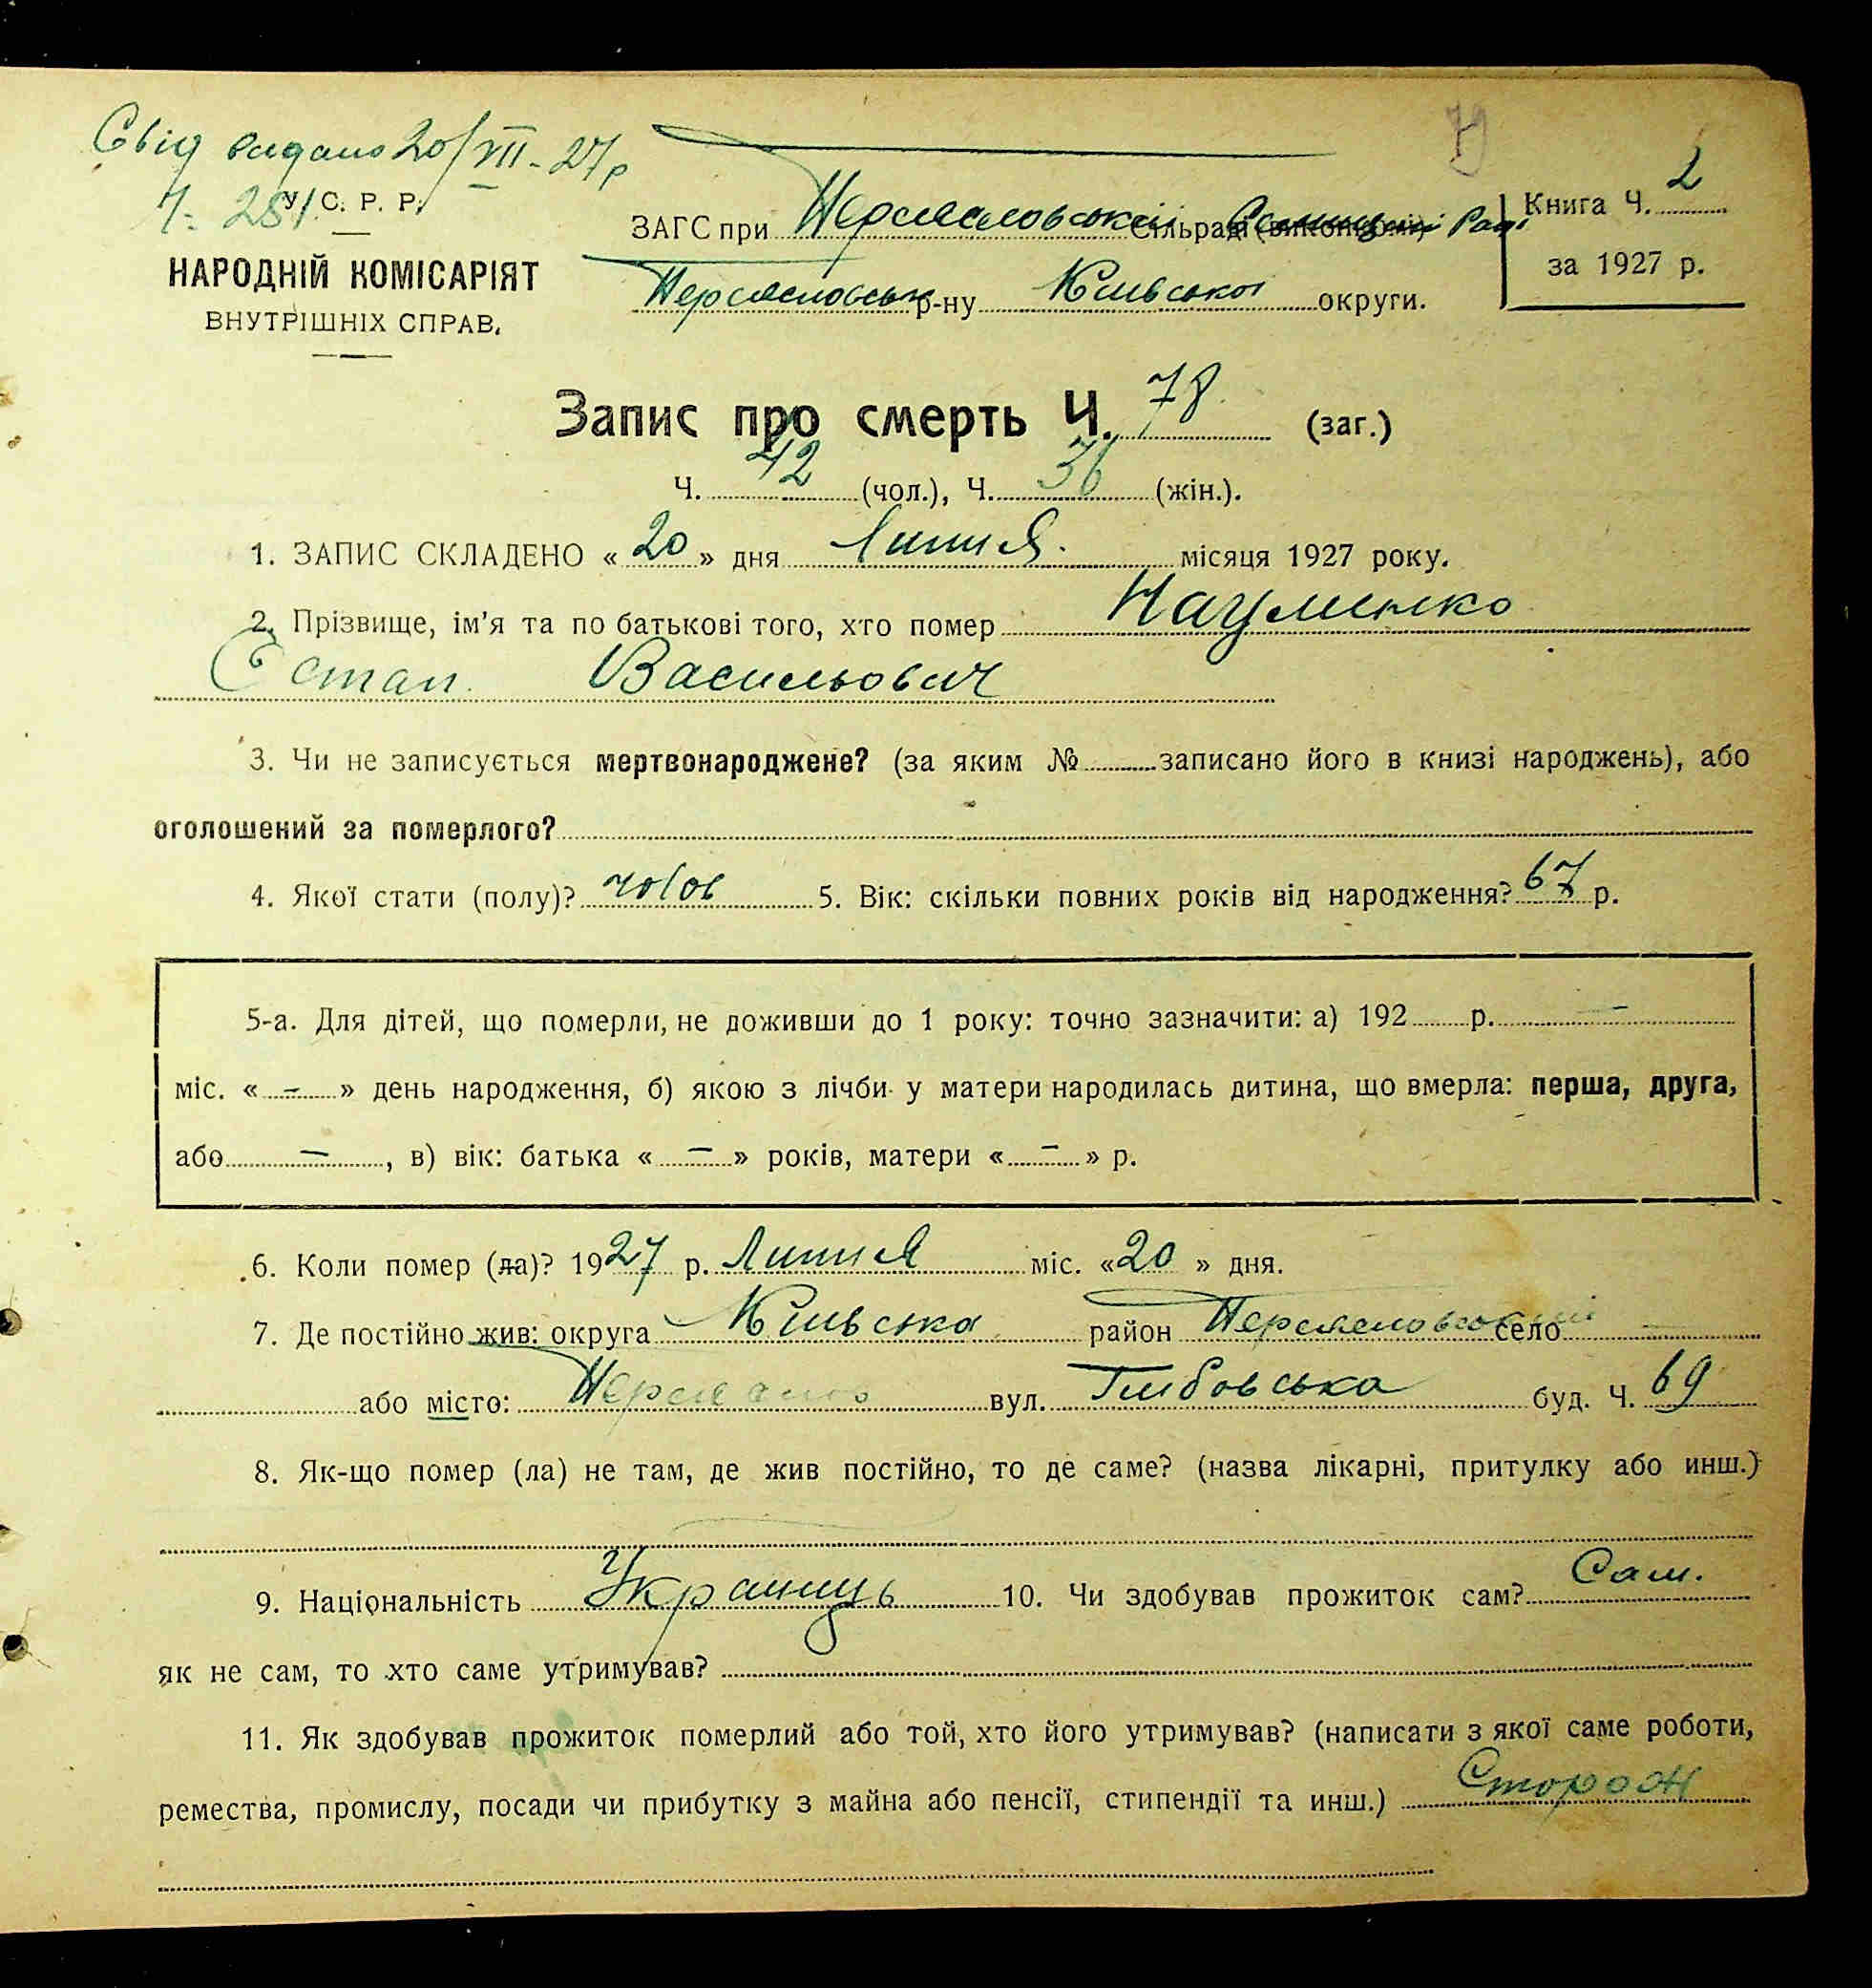 79
Свід видано 20/VII-27р
Ч. 281
У. С. Р. Р.
НАРОДНІЙ КОМІСАРІЯТ
ВНУТРІШНІХ СПРАВ.
ЗАГС при Переяславській Сільраді Раді
Переяславськ р-ну Київської округи.
Книга Ч. 2
за 1927 р.
Запис про смерть Ч. 78 (заг.)
Ч. 42 (чол.), Ч. 36 (жін.).
1. ЗАПИС СКЛАДЕНО « 20 » дня Липня місяця 1927 року.
2. Прізвище, ім'я та по батькові того, хто помер Науменко
Єстап Васильович
3. Чи не записується мертвонароджене? (за яким № записано його в книзі народжень), або
оголошений за померлого?
4. Якої стати (полу)? чолов 5. Вік: скільки повних років від народження? 67 р.
5-а. Для дітей, що померли, не доживши до 1 року: точно зазначити: а) 192 р. —
міс. « — » день народження, б) якою з лічби у матери народилась дитина, що вмерла: перша, друга,
або — , в) вік: батька « — » років, матери « — » р.
6. Коли помер (ла)? 1927 р. Липня міс. «20 » дня.
7. Де постійно жив: округа Київська район Переяславський село —
або місто: Переяслав вул. Глибовська буд. Ч. 69
8. Як-що помер (ла) не там, де жив постійно, то де саме? (назва лікарні, притулку або инш.)
9. Національність Українець 10. Чи здобував прожиток сам? Сам.
як не сам, то хто саме утримував?
11. Як здобував прожиток померлий або той, хто його утримував? (написати з якої саме роботи,
ремества, промислу, посади чи прибутку з майна або пенсії, стипендії та инш.) Сторож